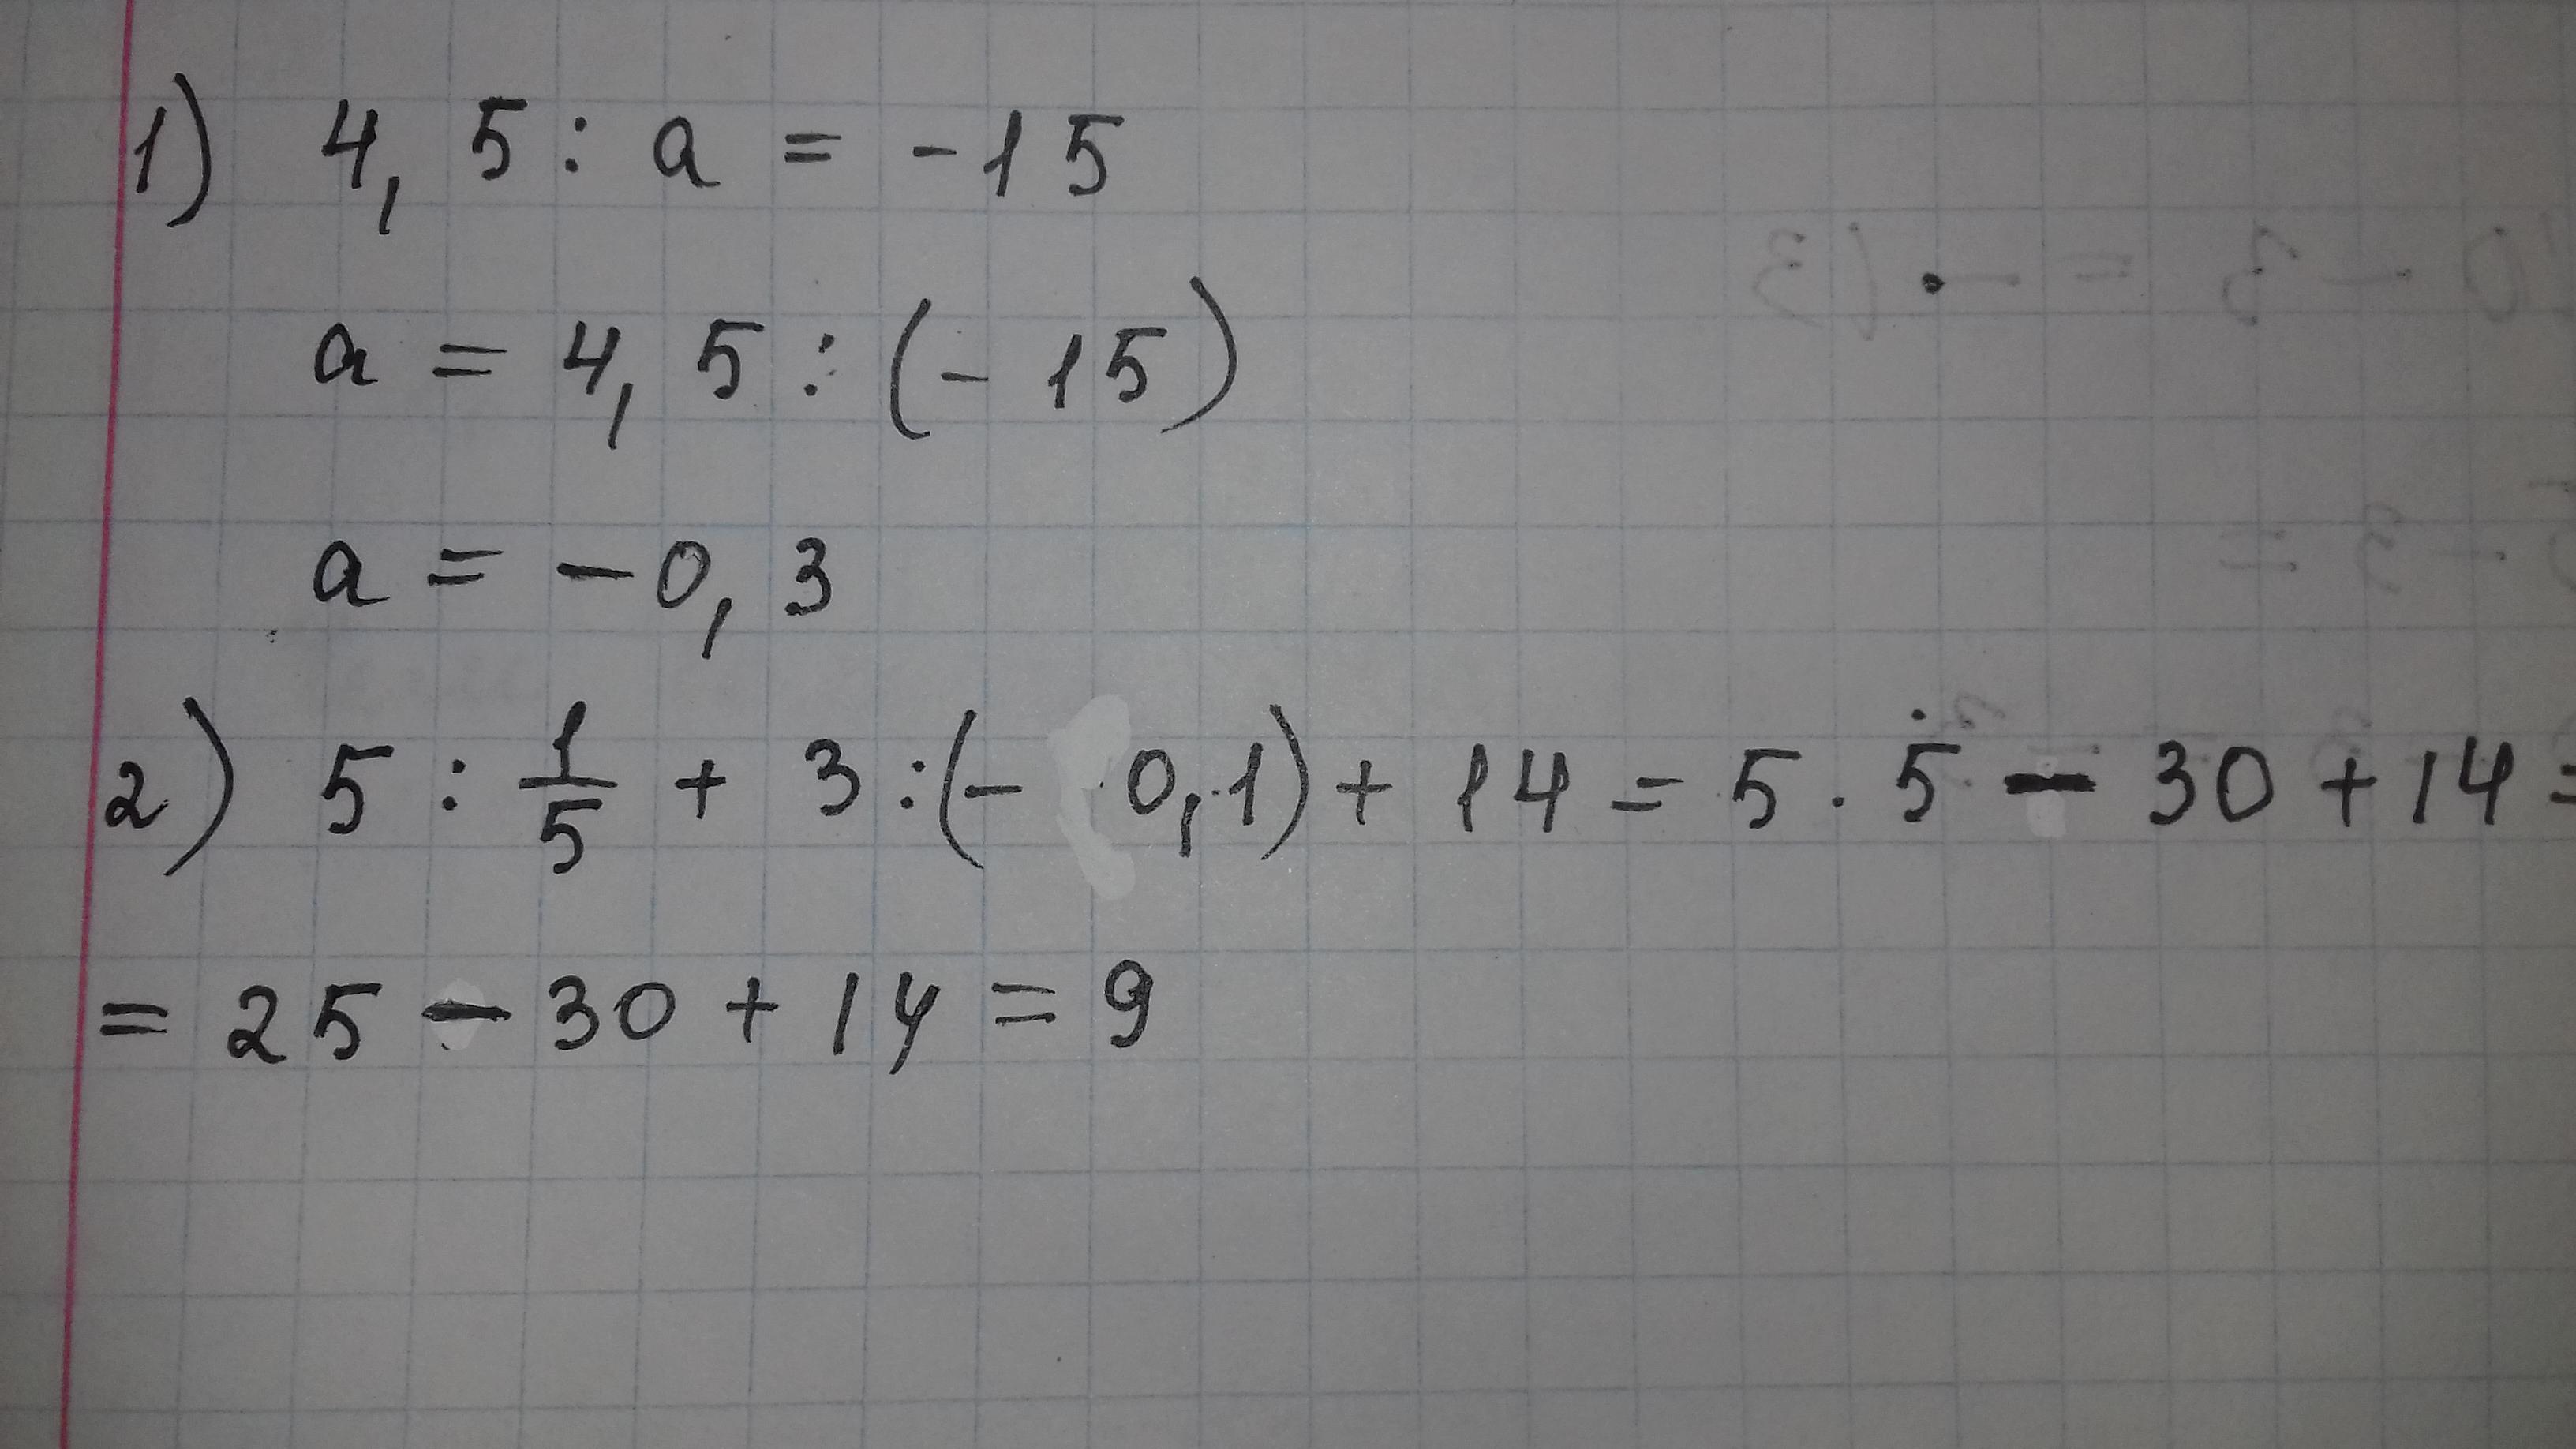 1) 4,5 : a = -15
a = 4,5 : (-15)
a = -0,3
2) 5 : 1/5 + 3 : (- 0,1) + 14 = 5 · 5 - 30 + 14 =
= 25 - 30 + 14 = 9